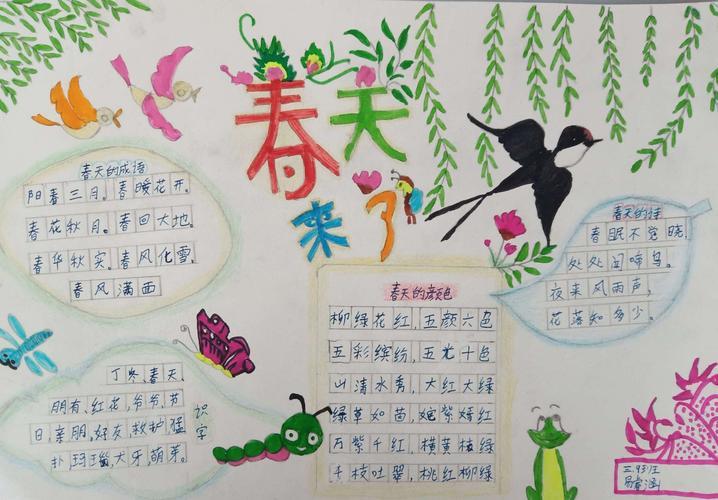 春天
来了
春天的成语
阳春三月。春暖花开。
春花秋月。春回大地。
春华秋实。春风化雪。
春风满面
春天的诗
春眠不觉晓,
处处闻啼鸟。
夜来风雨声,
花落知多少。
春天的颜色
柳绿花红,五颜六色
五彩缤纷,五光十色
山清水秀,大红大绿
绿草如茵,姹紫嫣红
万紫千红,横黄枝绿
千枝吐翠,桃红柳绿
丁冬、春天、
朋友、红花、爷爷、节
日、亲朋、好友、救护、猛
扑、玛瑙、大牙、萌芽。
识字
易睿涵